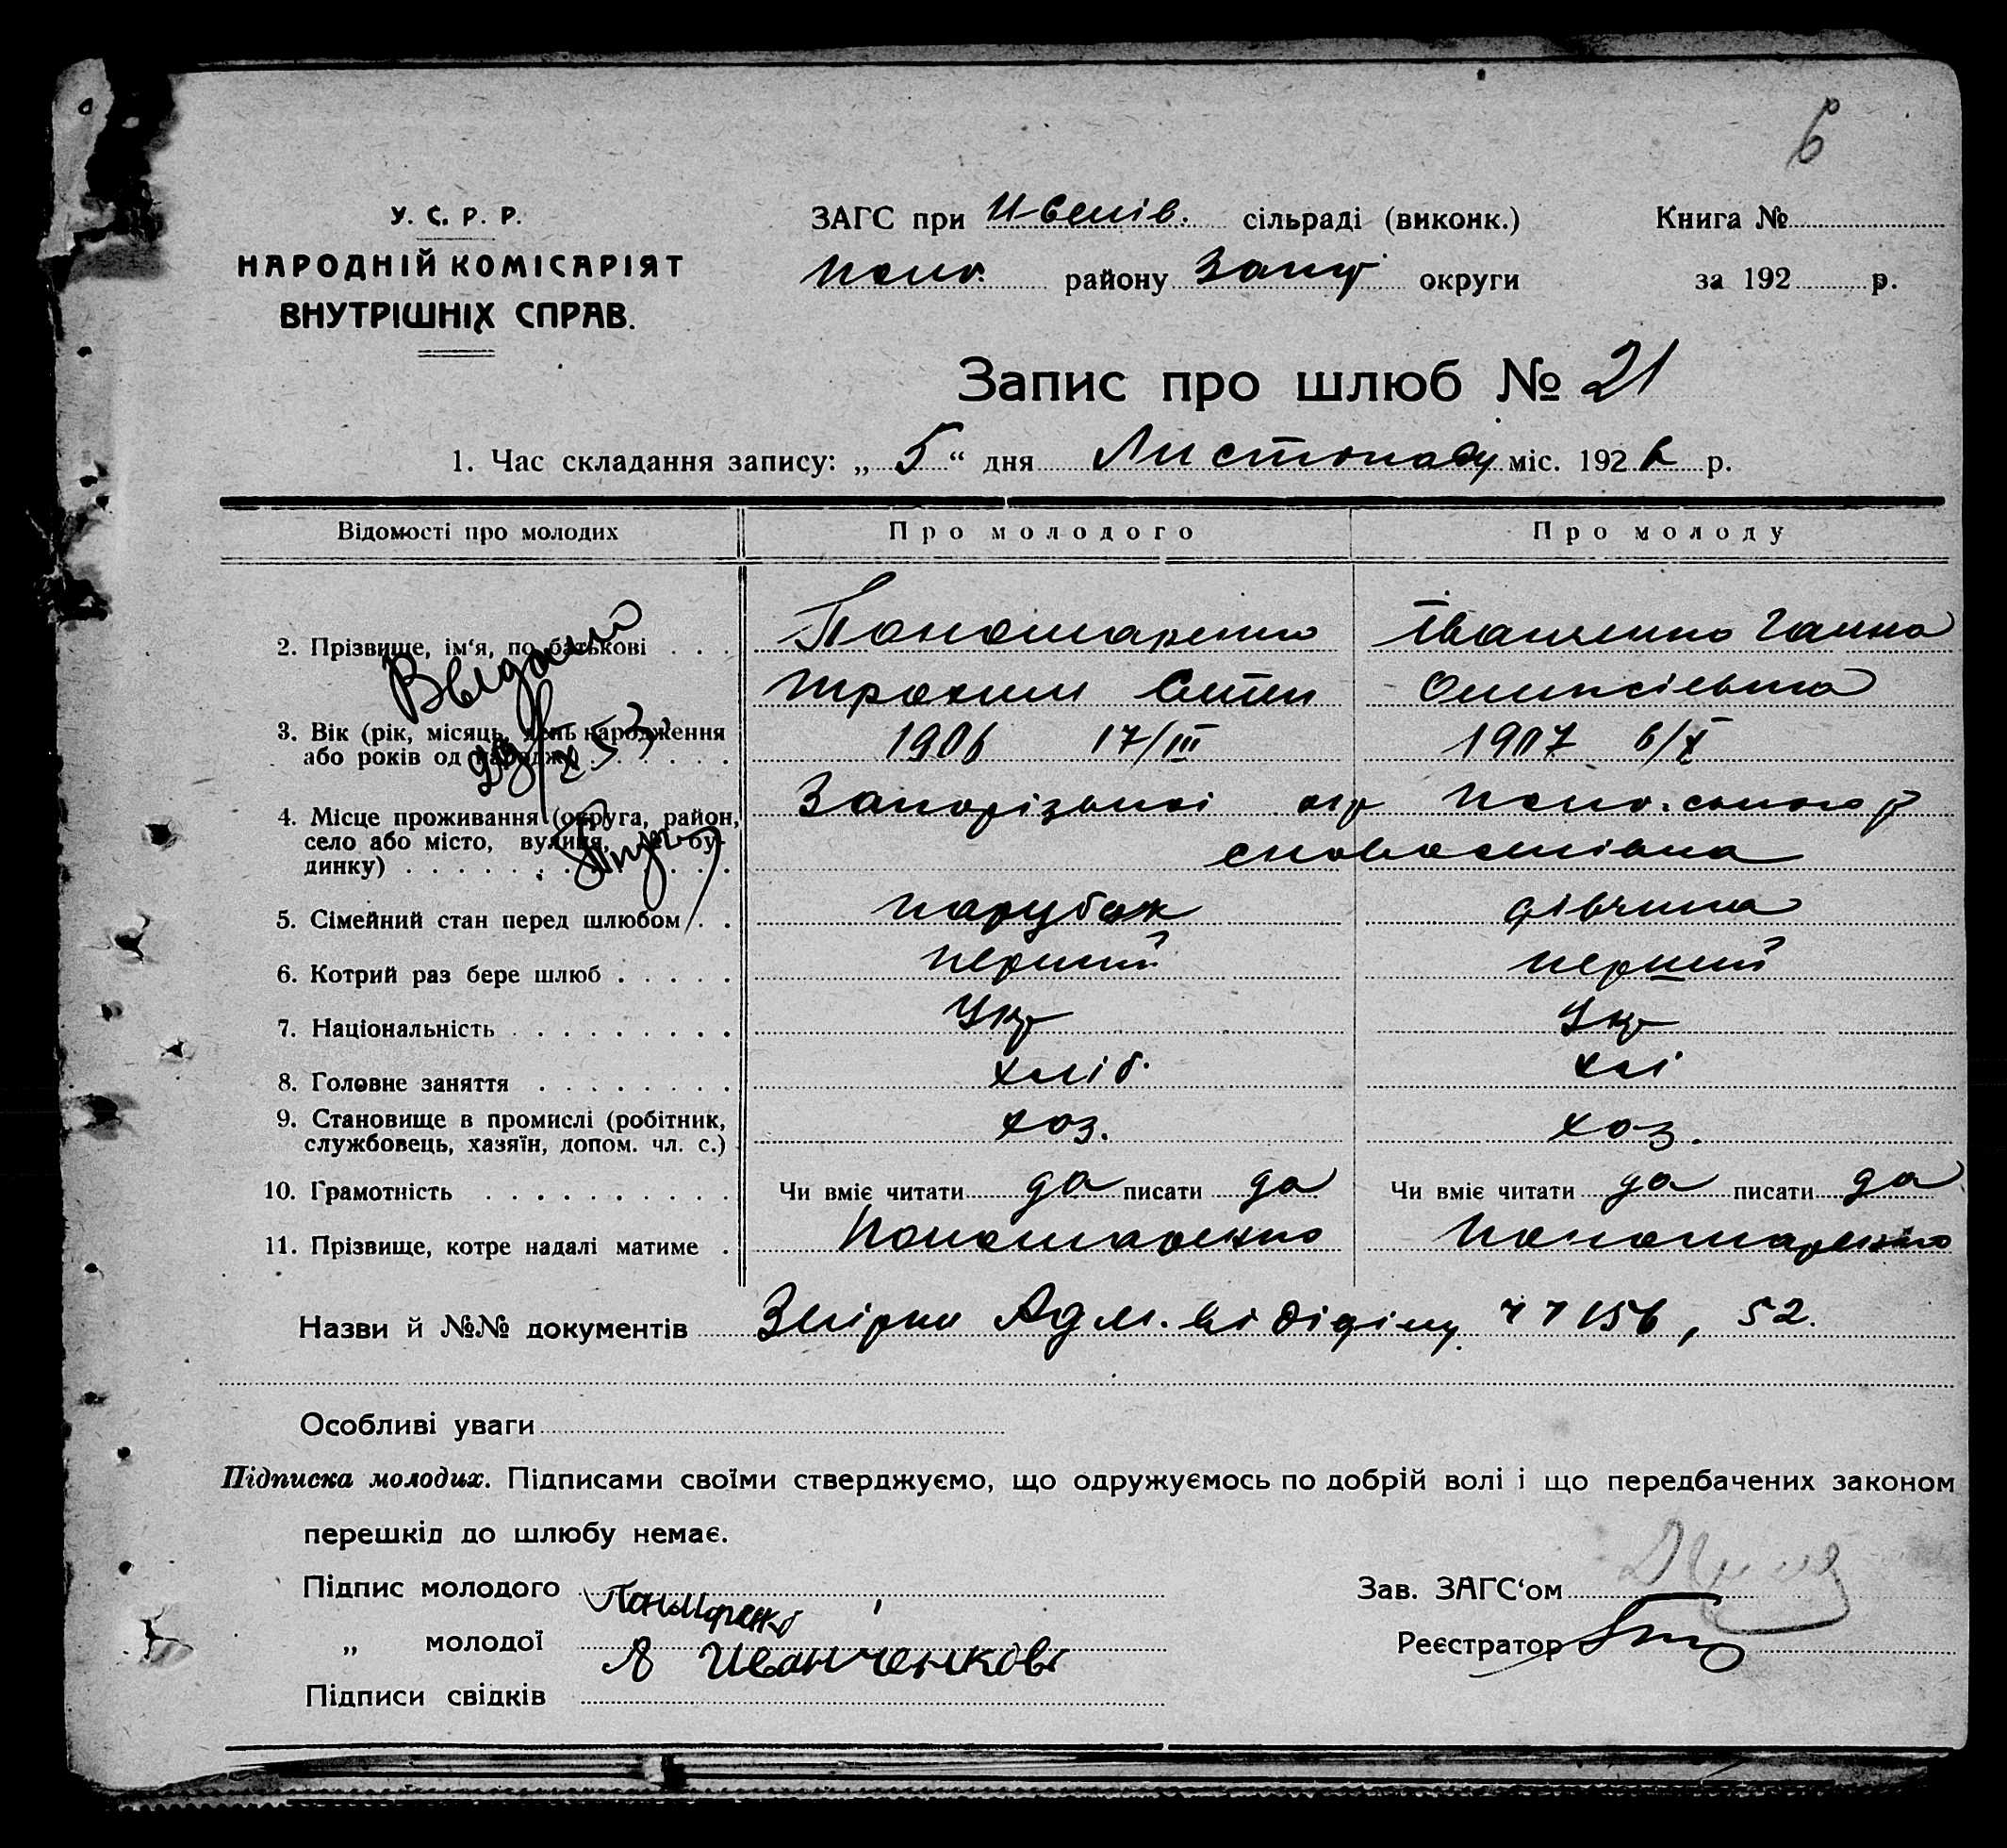 6
У. С. Р. Р.
НАРОДНІЙ КОМІСАРІЯТ
ВНУТРІШНІХ СПРАВ.
ЗАГС при сільраді (виконк.)
району Запор округи
Книга №
за 192 р.
Запис про шлюб № 21
1. Час складання запису: „ 5 “ дня Листопаду міс. 1926 р.
Відомості про молодих Про молодого Про молоду
2. Прізвище, ім'я, по батькові . . . Пономаренко Іванченко Ганна
Трохим Степ Олексіевна
3. Вік (рік, місяць, день народження
або років од народж.) . . . . . . 1906 17/III 1907 6/X
4. Місце проживання (округа, район,
село або місто, вулиця, № бу-
динку) . . . . . . . . . . . Запорізької окр
5. Сімейний стан перед шлюбом . . парубок дівчина
6. Котрий раз бере шлюб . . . . . перший перший
7. Національність . . . . . . . . . Укр Укр
8. Головне заняття . . . . . . . . хліб. хлі
9. Становище в промислі (робітник,
службовець, хазяїн, допом. чл. с.) хоз. хоз.
10. Грамотність . . . . . . . . . . Чи вміє читати да писати да Чи вміє читати да писати да
11. Прізвище, котре надалі матиме . Пономаренко Пономаренко
Назви й №№ документів Адм. 156, 52.
Особливі уваги
Підписка молодих. Підписами своїми стверджуємо, що одружуємось по добрій волі і що передбачених законом
перешкід до шлюбу немає.
Підпис молодого Пономаренко
„ молодої Иванченкова
Підписи свідків
Зав. ЗАГС'ом
Реєстратор